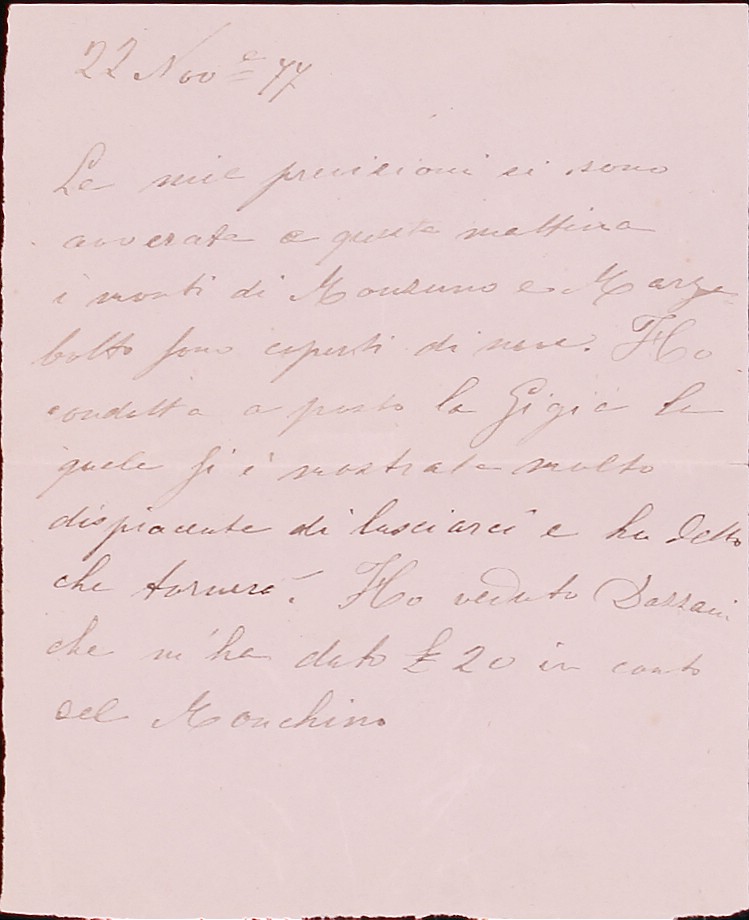 22 Nov.e 77
Le mie previsioni si sono
avverate e questa mattina
i monti di Monzuno e Marza
botto sono coperti di neve. Ho
condotta a posto la Gigia la
quale si è mostrata molto
dispiacente di lasciarci e ha detto
che tornerà. Ho veduto Dazzani
che m'ha dato £ 20 in conto
del Monchino